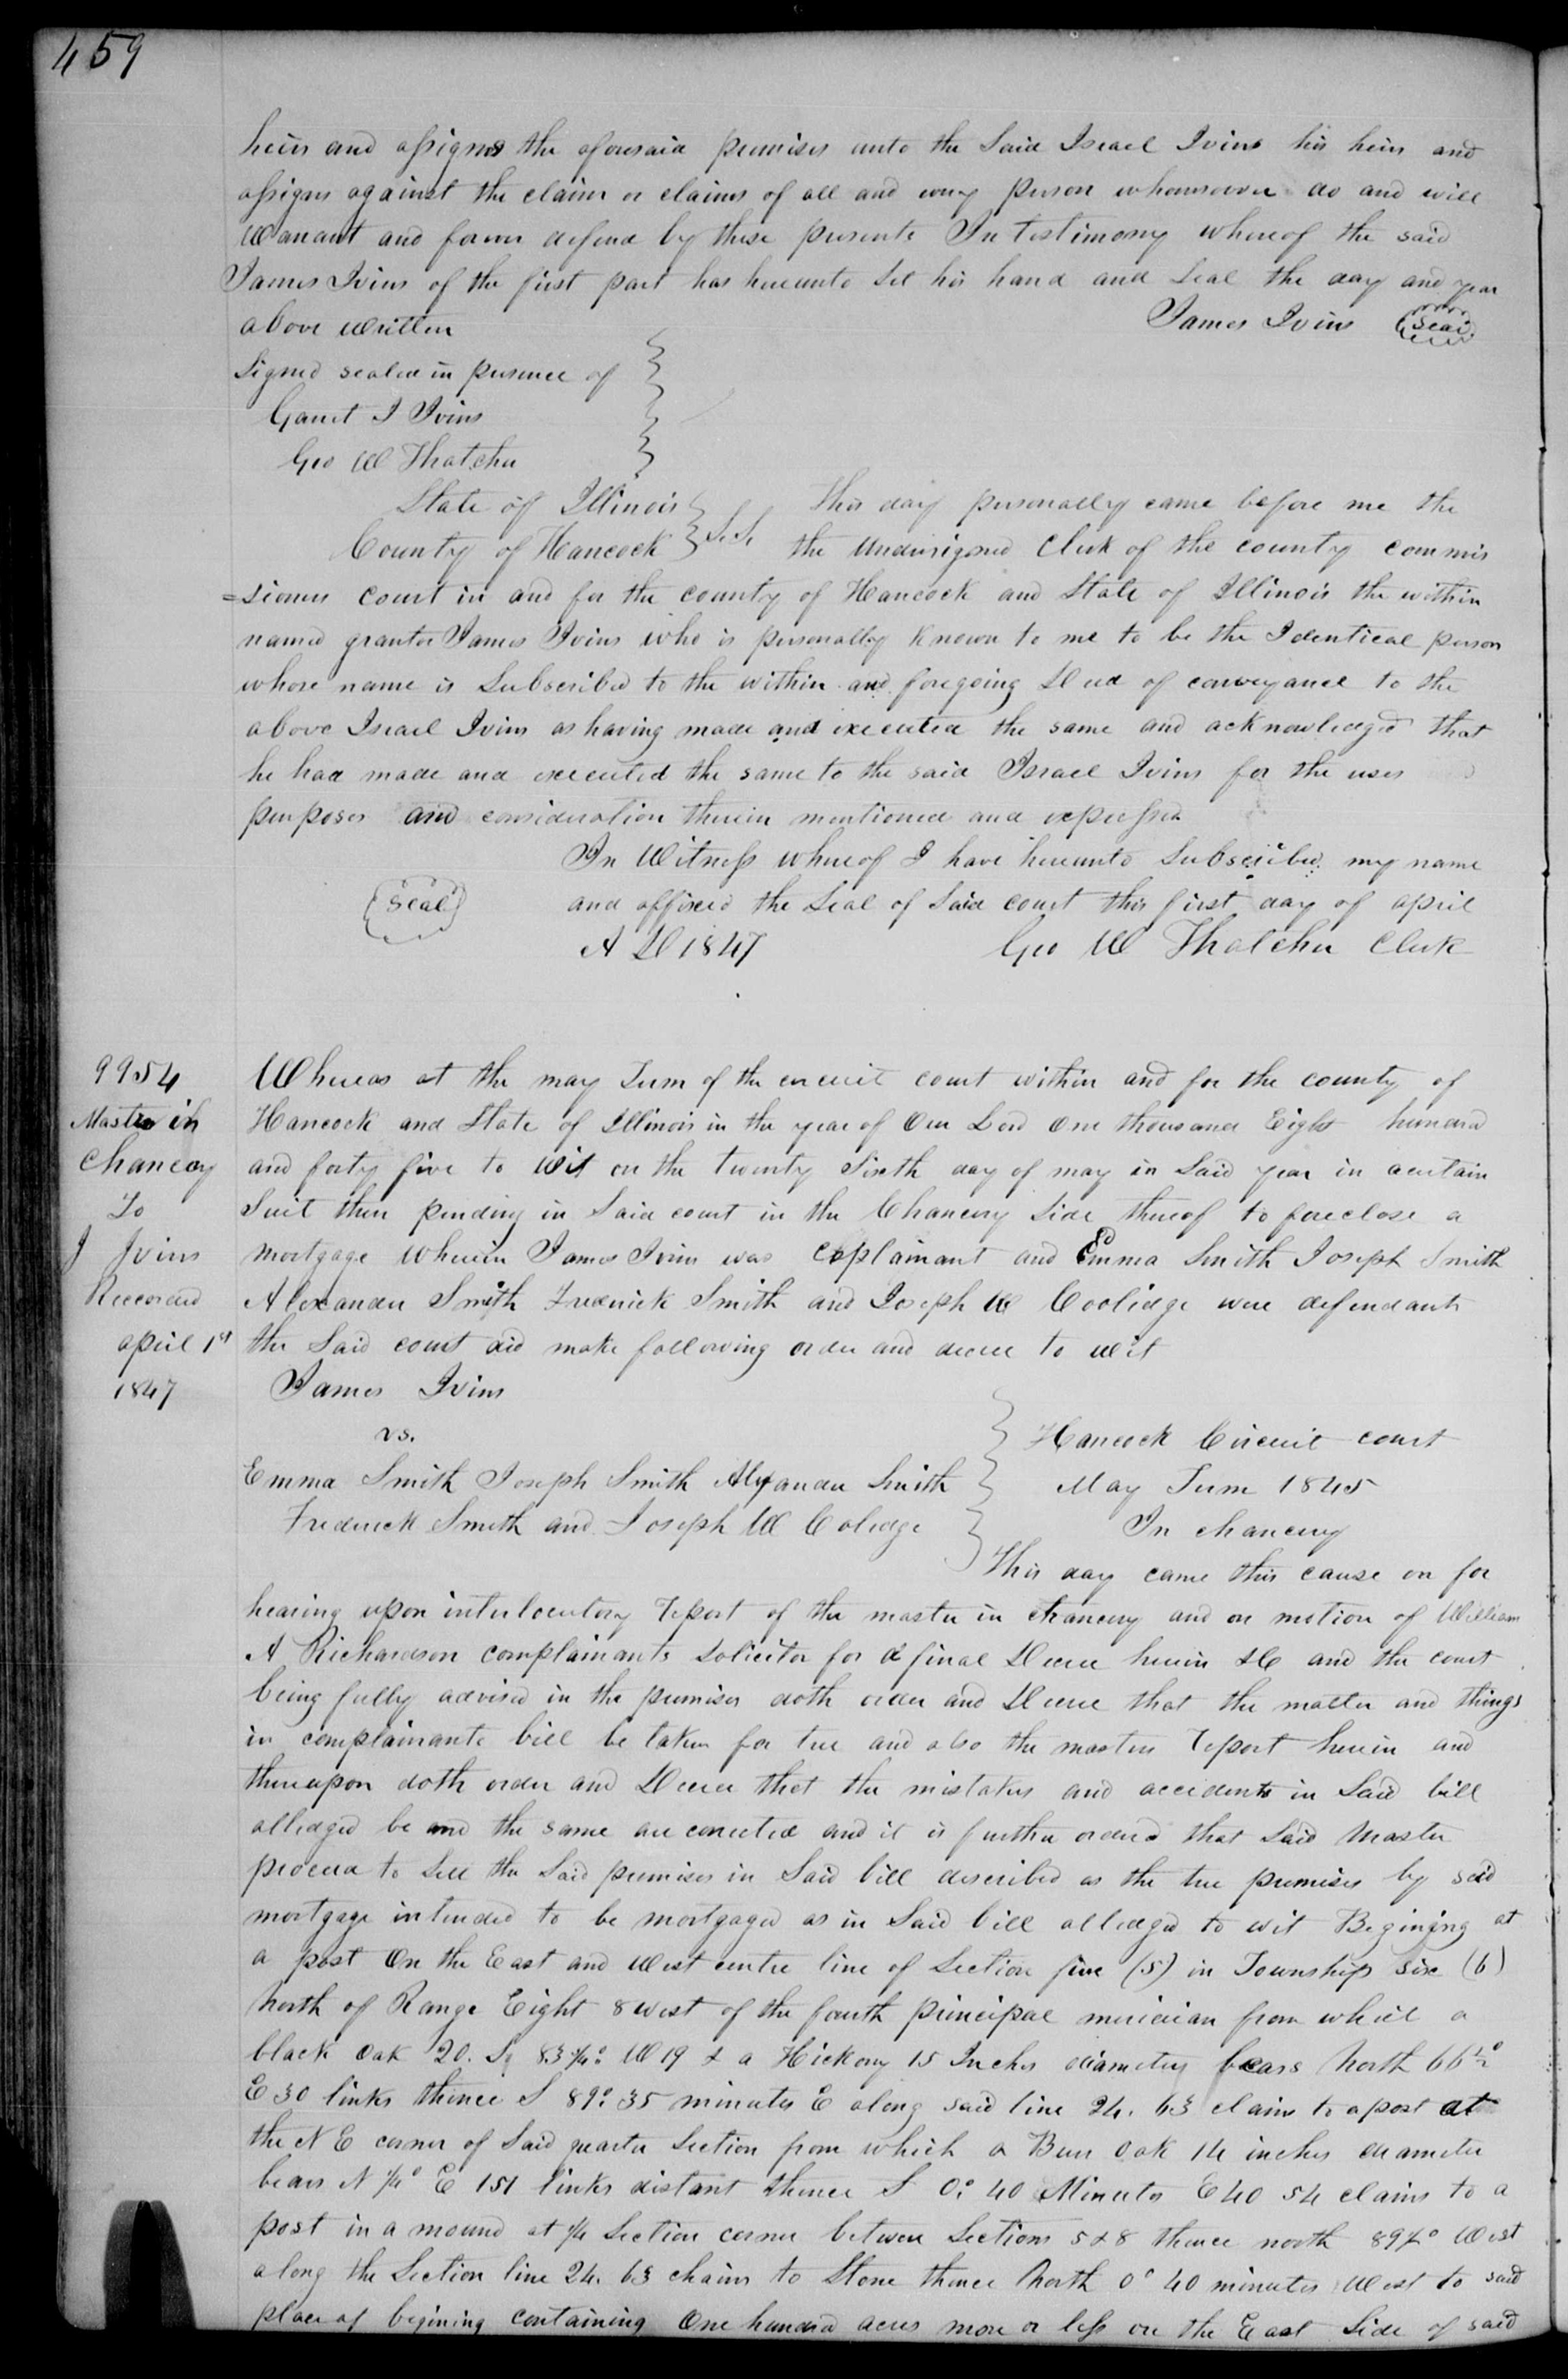 459
heirs and assigns the aforesaid premises unto the Said Israel Ivins his heirs and
assigns against the claim or claims of all and every person whomsoever do and will
Warrant and forever defend by these presents In testimony whereof the said
James Ivins of the first part has hereunto Set his hand and Seal the day and year
above written James Ivins (Seal)
Signed sealed in presence of
Garret I Ivins
Geo W Thatcher
State of Illinois } S.S. This day personally came before me the
County of Hancock the Undersigned Clerk of the county commis
=sioners Court in and for the county of Hancock and State of Illinois the within
named grantor James Ivins who is personally known to me to be the Identical person
whose name is Subscribed to the within and foregoing Deed of conveyance to the
above Israel Ivins as having made and executed the same and acknowledged that
he had made and executed the same to the said Israel Ivins for the uses
purposes and consideration therein mentioned and expressed
In Witness whereof I have hereunto Subscribed my name
(Seal) and affixed the Seal of Said court this first day of april
A D 1847 Geo W Thatcher Clerk
9954
Master in
Chancery
To
J Ivins
Recorded
april 1st
1847
Whereas at the may Term of the circuit court within and for the county of
Hancock and State of Illinois in the year of Our Lord One thousand Eight hundred
and forty five to Wit on the twenty Sixth day of may in Said year in a certain
Suit then pending in Said court in the Chancery Side thereof to foreclose a
mortgage wherein James Ivins was complainant and Emma Smith Joseph Smith
Alexander Smith Frederick Smith and Joseph W Coolidge were defendants
the Said court did make following order and decree to wit
James Ivins
vs.
Hancock Circuit court
Emma Smith Joseph Smith Alexander Smith May Term 1845
Frederick Smith and Joseph W Colidge In chancery
This day came this cause on for
hearing upon interlocutory report of the master in chancery and on motion of William
A Richardson complainants Solicitor for a final Decree herein &C and the court
being fully advised in the premises doth order and Decree that the matter and things
in complainants bill be taken for true and also the masters report herein and
thereupon doth order and Decree that the mistakes and accidents in Said bill
alledged be and the same are corrected and it is further ordered that Said Master
proceed to Sell the Said premises in Said bill described as the true premises by said
mortgage intended to be mortgaged as in Said bill alledged to wit Begining at
a post On the East and West centre line of Section five (5) in Township Six (6)
North of Range Eight 8 west of the fourth principal meridian from which a
black Oak 20. 83 1/4° W 19 & a Hickory 15 Inches diameter bears North 66 1/2°
E 30 links thence S 89° 35 minutes E along said line 24. 63 chains to a post at
the N E corner of Said quarter Section from which a Burr Oak 14 inches diameter
bears N 1/4° E 151 links distant thence S 0° 40 Minutes E 40 54 chains to a
post in a mound at 1/4 Section corner between Sections 5 & 8 thence north 89 1/2° West
along the Section line 24. 63 chains to Stone thence North 0° 40 minutes West to said
place of begining containing One hundred acres more or less on the East Side of said